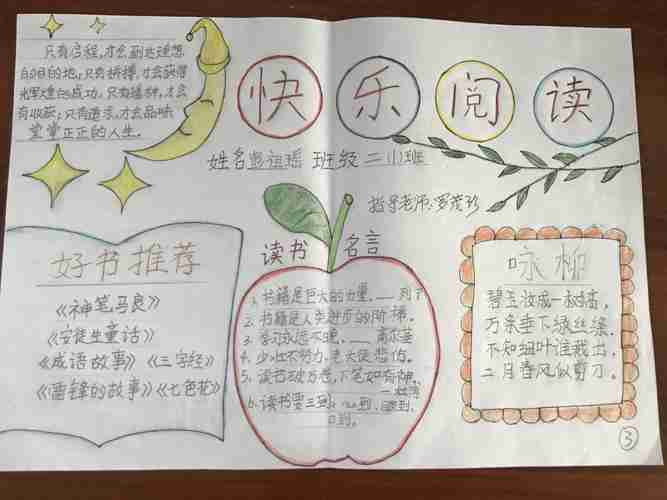 只有启程,才会到达理想
的目的地,只有拼搏,才会获得
辉煌的成功,只有播种,才会
有收获;只有追求,才会品味
堂堂正正的人生。
快乐阅读
姓名彭祖瑶 班级二(1)班
指导老师:罗茂珍
好书推荐
《神笔马良》
《安徒生童话》
《成语故事》《三字经》
《雷锋的故事》《七色花》
读书名言
1. 书籍是巨大的力量。——列宁
2. 书籍是人类进步的阶梯。
3. 学习永远不晚。——高尔基
4. 少壮不努力,老大徒悲伤。
5. 读书破万卷,下笔如有神。
——杜甫
6. 读书要三到:心到、眼到、
口到。
咏柳
碧玉妆成一树高,
万条垂下绿丝绦。
不知细叶谁裁出,
二月春风似剪刀。
3